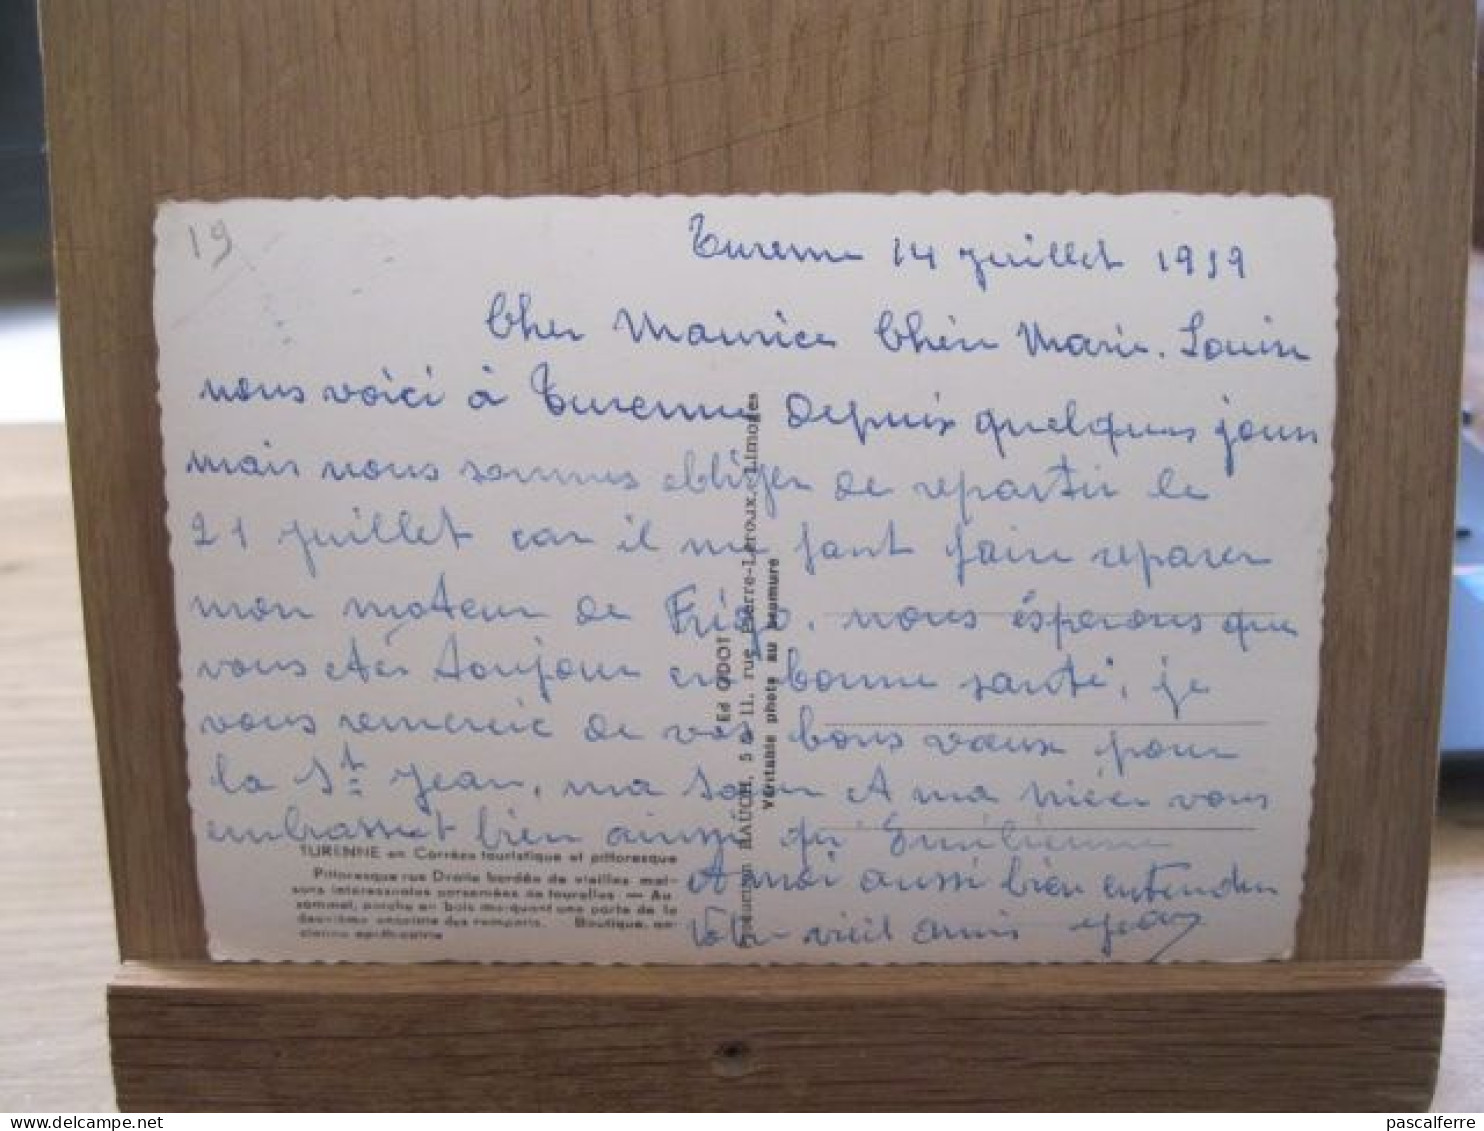 19
Turenne 14 juillet 1959
Cher Maurice Chère Marie-Louise
nous voici à Turenne depuis quelques jours
mais nous sommes obliger de repartir le
21 juillet car il me faut faire reparer
mon moteur de Frigo. nous éspérons que
vous êtes toujour en bonne santé, je
vous remercie de vos bons vœux pour
la St Jean, ma sœur et ma nièce vous
embrassent bien ainsi qu'Emilienne
et moi aussi bien entendu
Votre vieil amis Jean
TURENNE en Corrèze touristique et pittoresque
Pittoresque rue Droite bordée de vieilles mai-
sons intéressantes parsemées de tourelles. — Au
sommet, porche en bois marquant une porte de la
deuxième enceinte des remparts. Boutique, an-
cienne apothicairie
Ed ODOT
Production RAUCH, 5 & 11, rue Pierre-Leroux, Limoges
Véritable photo au bromure
pascalferre